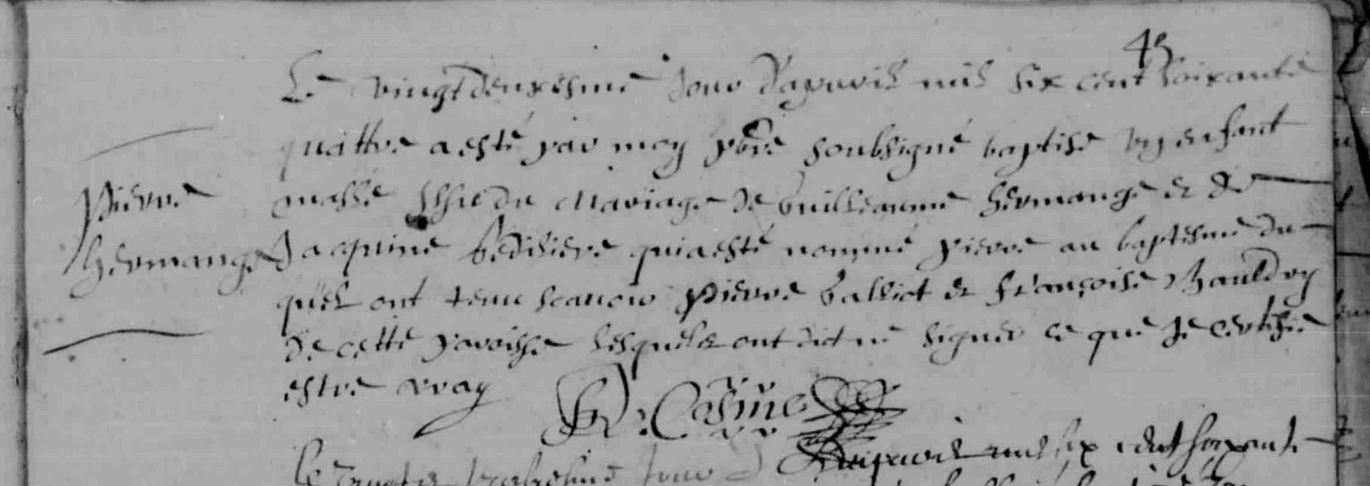 45
Le vingtdeuxesme jour d'apvril mil six cent soixante
quattre a esté par moy pbre soubsigné baptisé un enfant
masle issu du mariage de Guilleaume Hermange et de
Pierre
Hermange
Jacquine qui a esté nommé Pierre au baptesme du
quel ont tenu scavoir Pierre et Françoise
de cette paroisse lesquels ont dict ne signer ce que je certifie
estre vray
jour d'apvril mil six cent soixante